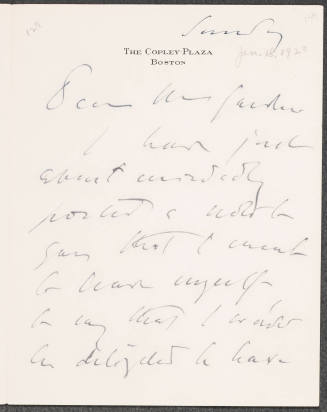 Sunday
THE COPLEY PLAZA
BOSTON
Jan. 1920
Dear Mrs Gardner
I have just
about
posted a note to
you that I meant
to leave myself
to say that I would
be delighted to have